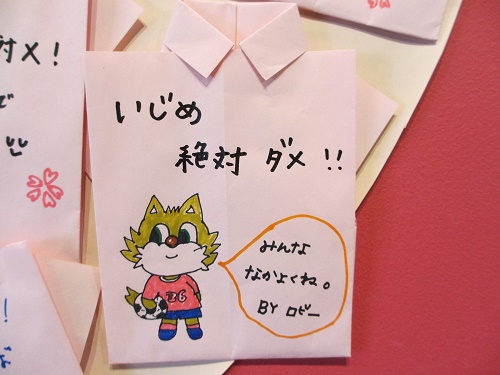 対メ!
で
いじめ
絶対 ダメ !!
みんな
なかよくね。
BY ロビー
36
!